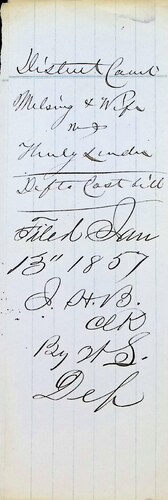 District Court
Melsing & Wife
vs
Defts Cost bill
Filed Jan
13" 1857
J. H. B.
Clk
By W S.
Dep